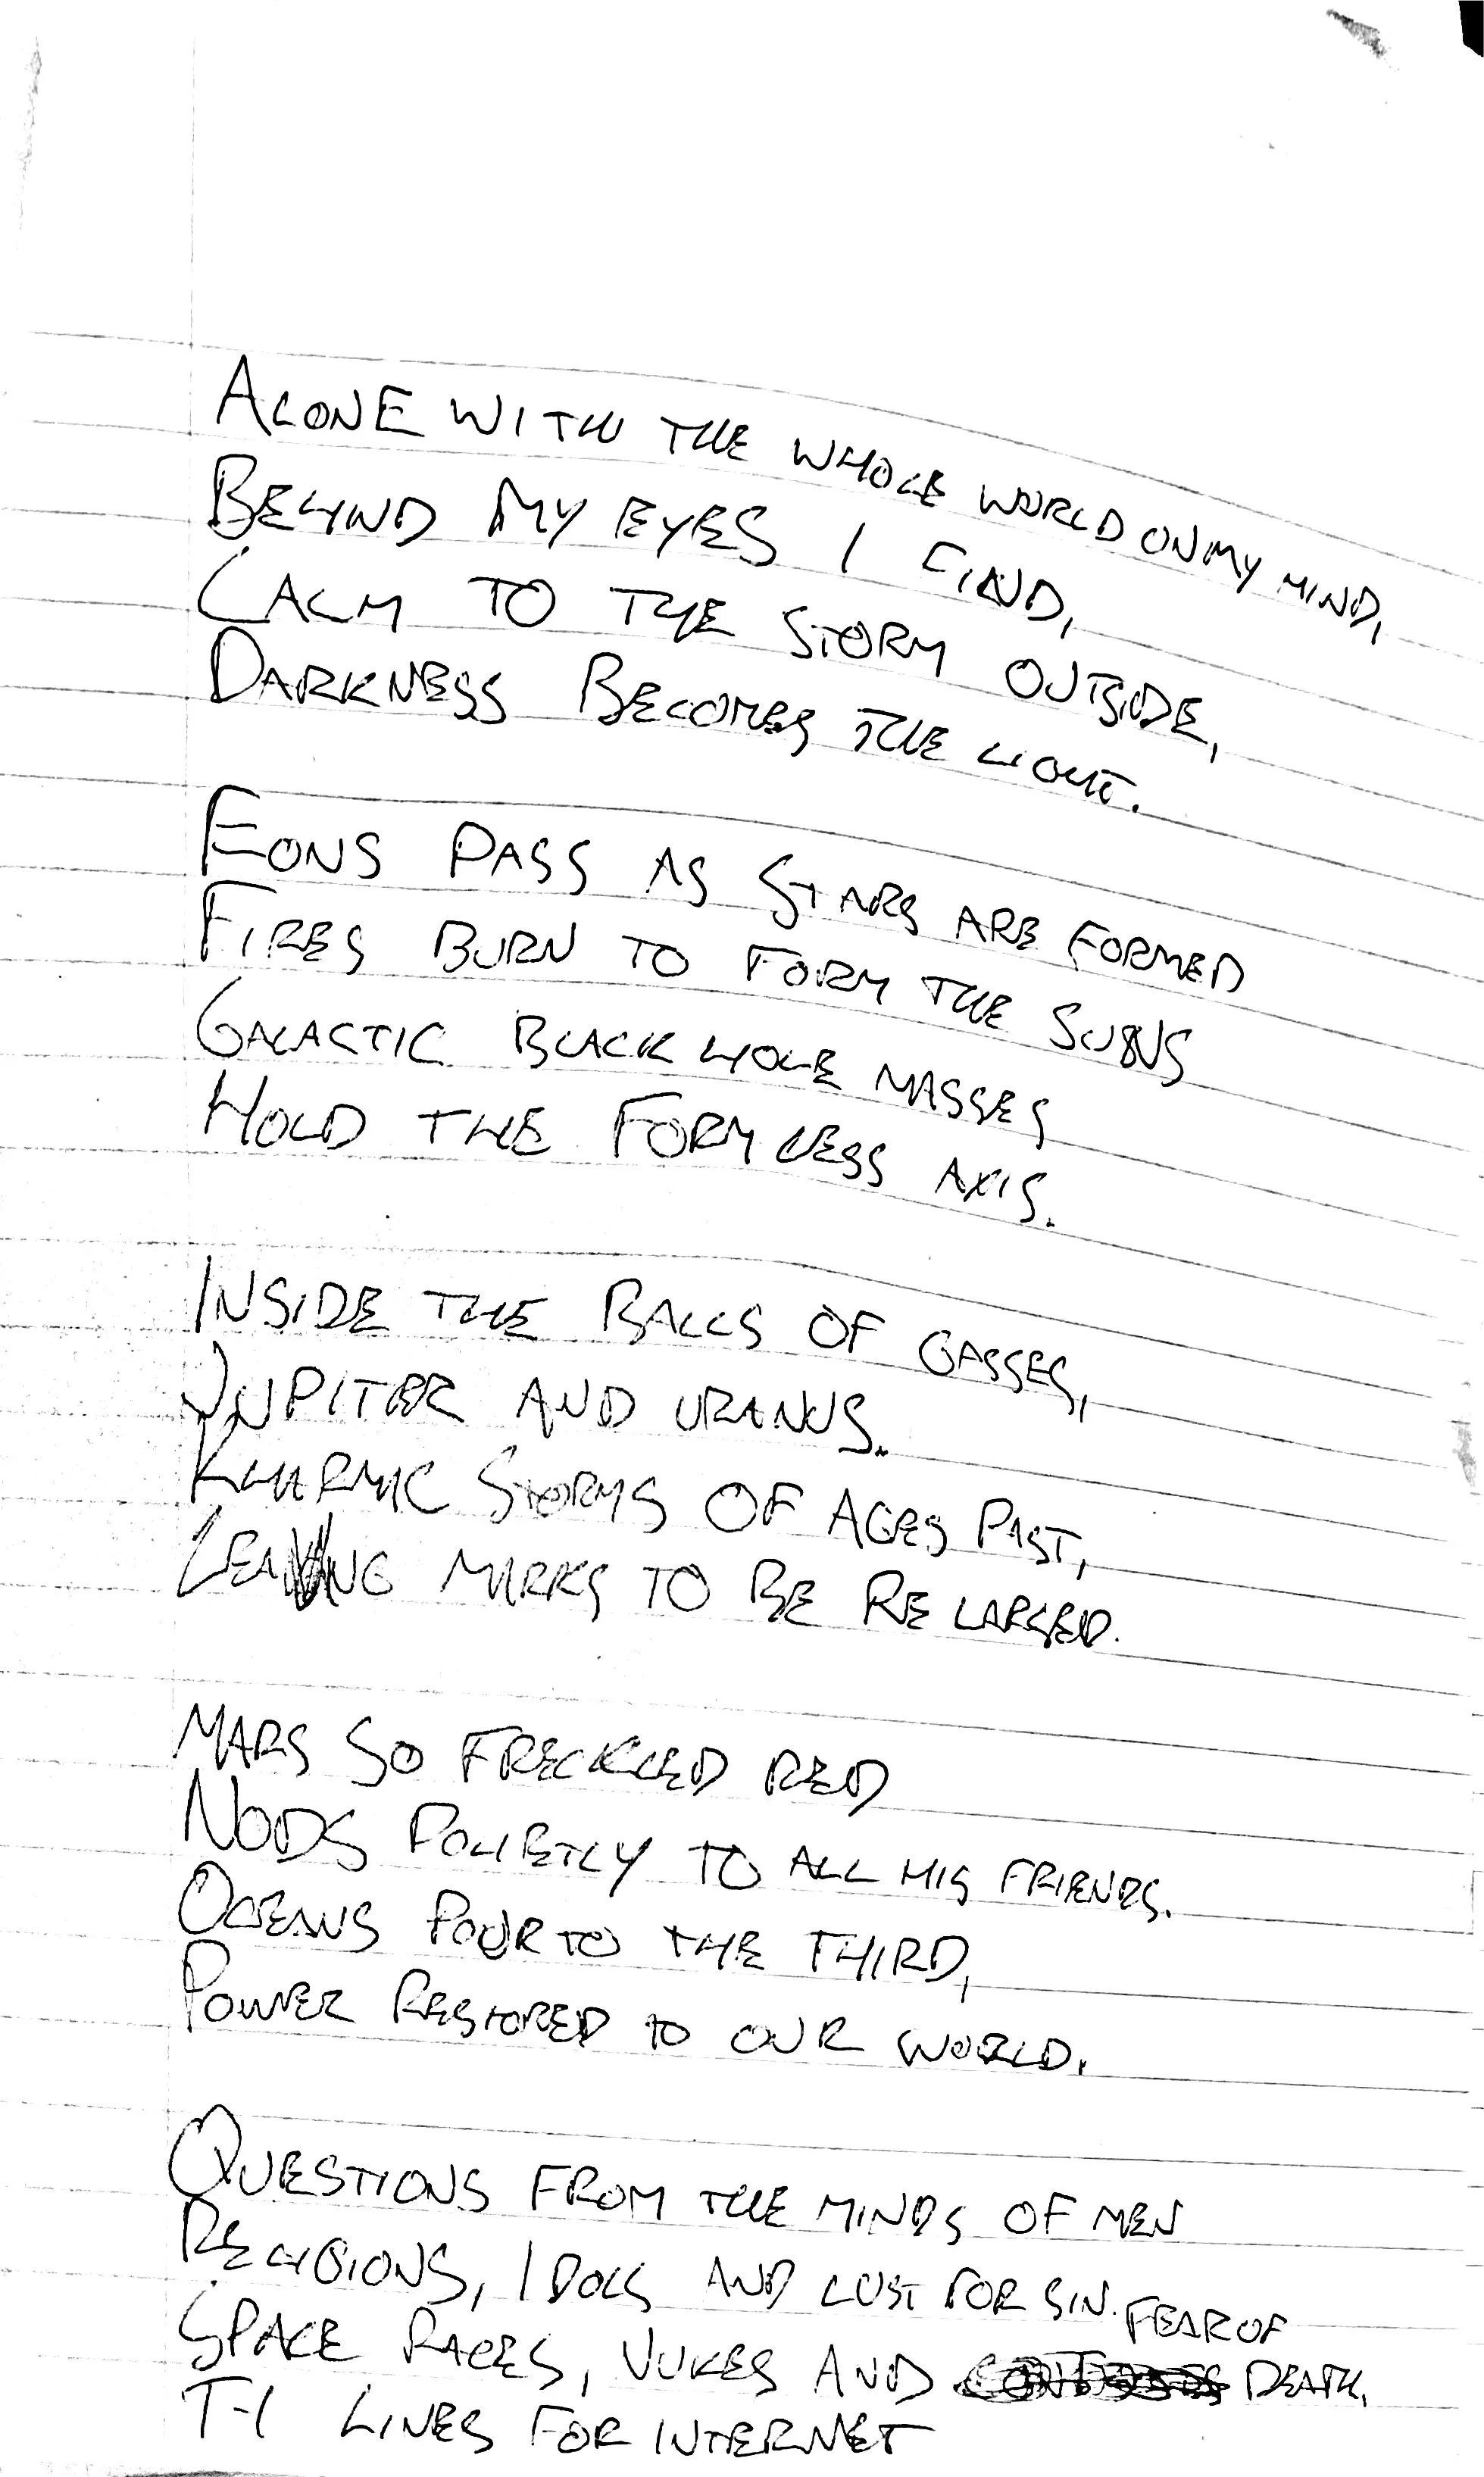 ALONE WITH THE WHOLE WORLD ON MY MIND,
BEHIND MY EYES I FIND,
CALM TO THE STORM OUTSIDE,
DARKNESS BECOMES THE LIGHT.
EONS PASS AS STARS ARE FORMED
FIRES BURN TO FORM THE SUNS
GALACTIC BLACK HOLE MASSES
HOLD THE FORMLESS AXIS.
INSIDE THE BALLS OF GASSES,
JUPITER AND URANUS.
KHARMIC STORMS OF AGES PAST,
LEAVING MARKS TO BE RELARGED.
MARS SO FRECKLED RED
NODS POLIETLY TO ALL HIS FRIENDS.
OCEANS POUR TO THE THIRD,
POWER RESTORED TO OUR WORLD.
QUESTIONS FROM THE MINDS OF MEN
RELIGIONS, IDOLS AND LUST FOR SIN.
SPACE RACES, NUKES AND FEAR OF DEATH,
T-1 LINES FOR INTERNET